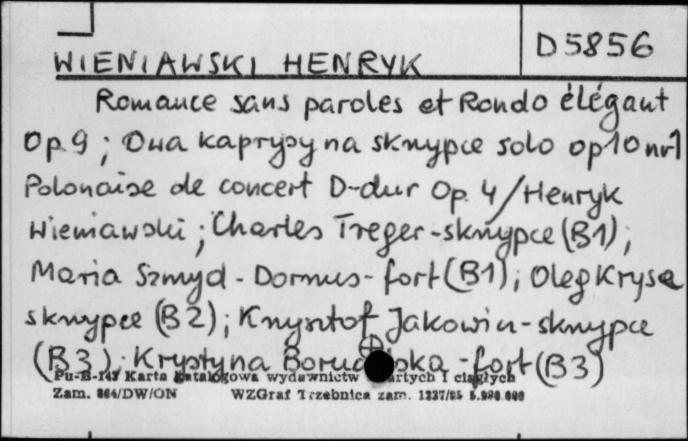 D5856
WIENIAWSKI HENRYK
Romance sans paroles et Rondo élégant
Op.9 ; Dwa kaprysy na skrzypce solo op10 nr1
Polonaise de concert D-dur Op. 4 / Henryk
Wieniawski ; Charles Treger - skrzypce (B1) ;
Maria Szmyd - Dormus - fort (B1) ; Oleg Krysa
skrzypce (B2) ; Krzysztof Jakowicz - skrzypce
(B3) ; Krystyna - fort (B3)
Pu-B-147 Karta katalogowa wydawnictw zwartych i ciągłych
Zam. 864/DW/ON WZGraf Trzebnica zam. 1237/85 5.000.000